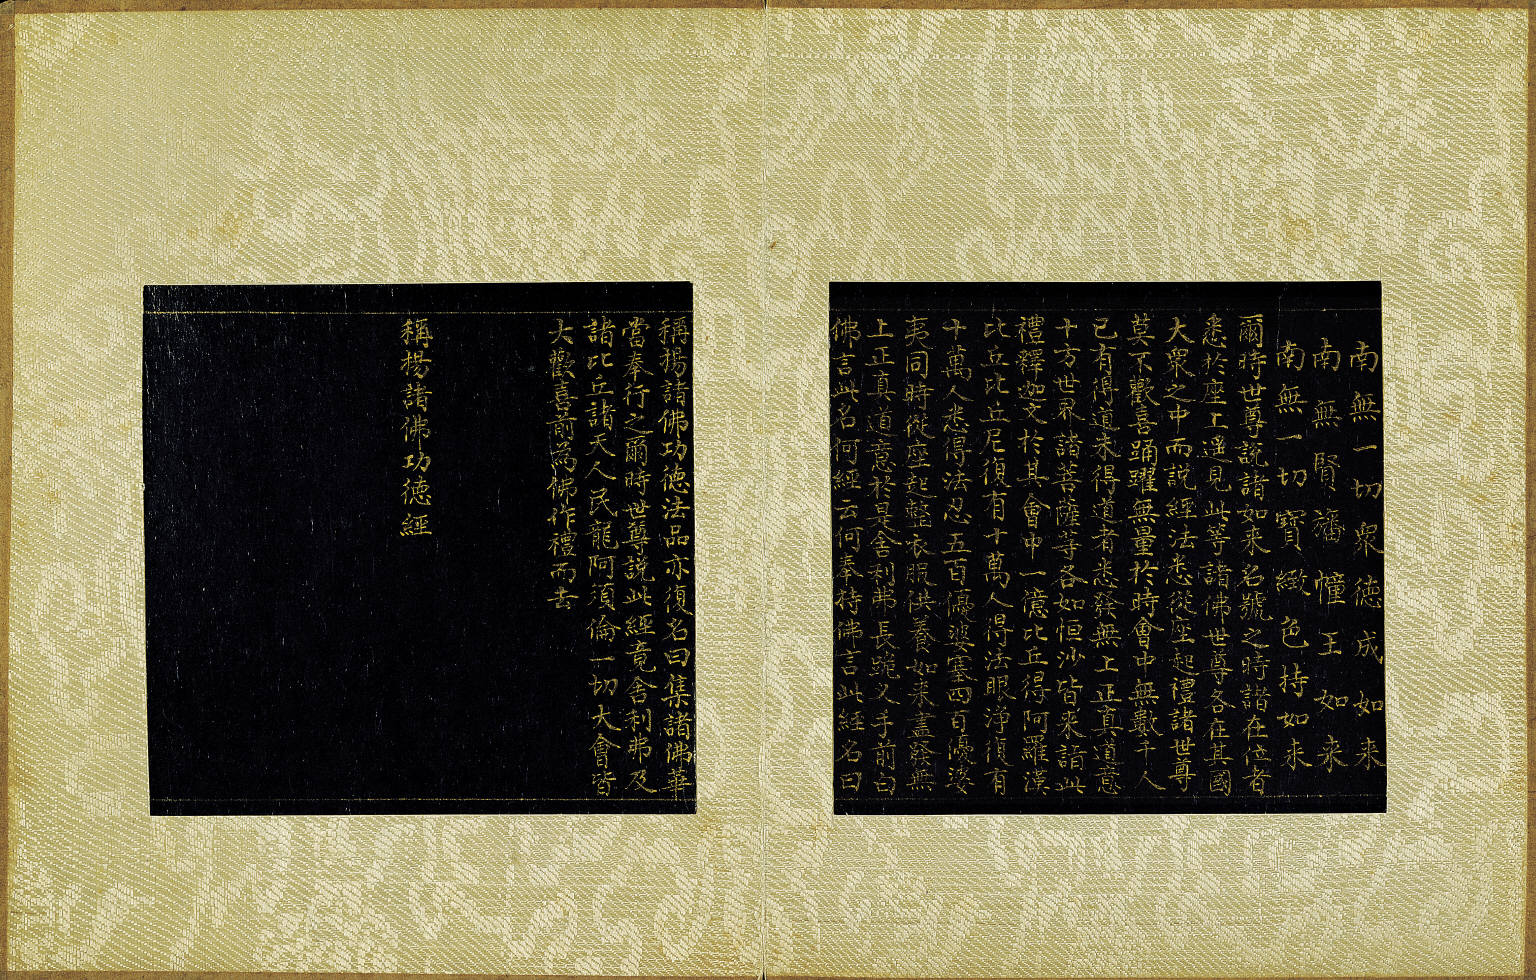 南無一切眾德成如来
南無賢旛幢王如来
南無一切寶緻色持如来
爾時世尊說諸如来名號之時諸在位者
悉於座上遥見此等諸佛世尊各在其國
大眾之中而說經法悉從座起禮諸世尊
莫不歡喜踊躍無量於時會中無數千人
已有得道未得道者悉發無上正真道意
十方世界諸菩薩等各如恒沙皆来詣此
禮釋迦文於其會中一億比丘得阿羅漢
比丘比丘尼復有十萬人得法眼淨復有
十萬人悉得法忍五百優婆塞四百優婆
夷同時從座起整衣服供養如来盡發無
上正真道意於是舍利弗長跪叉手前白
佛言此名何經云何奉持佛言此經名曰
稱揚諸佛功德法品亦復名曰集諸佛華
當奉行之爾時世尊說此經竟舍利弗及
諸比丘諸天人民龍阿須倫一切大會皆
大歡喜前為佛作禮而去
稱揚諸佛功德經